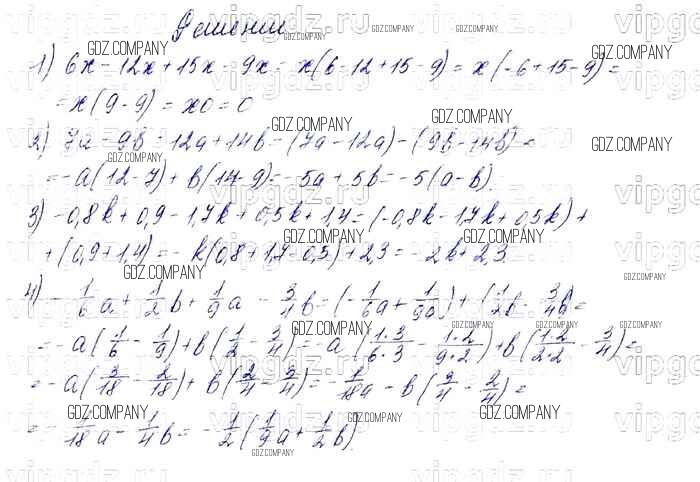 Решение
1) 6x - 12x + 15x - 9x = x(6-12+15-9) = x(-6+15-9) =
= x(9-9) = x0 = 0
2) 7a - 9b - 12a + 14b = (7a-12a) - (9b-14b) =
= -a(12-7) + b(14-9) = -5a + 5b = -5(a-b)
3) -0,8k + 0,9 - 1,7k + 0,5k + 1,4 = (-0,8k - 1,7k + 0,5k) +
+ (0,9+1,4) = -k(0,8+1,7-0,5) + 2,3 = -2k + 2,3
4) -1/6a + 1/2b + 1/9a - 3/4b = (-1/6a + 1/9a) + (1/2b - 3/4b) =
= -a(1/6 - 1/9) + b(1/2 - 3/4) = -a(1·3/6·3 - 1·2/9·2) + b(1·2/2·2 - 3/4) =
= -a(3/18 - 2/18) + b(2/4 - 3/4) = -1/18a - b(3/4 - 2/4) =
= -1/18a - 1/4b = -1/2(1/9a + 1/2b)
GDZ.COMPANY
vipgdz.ru